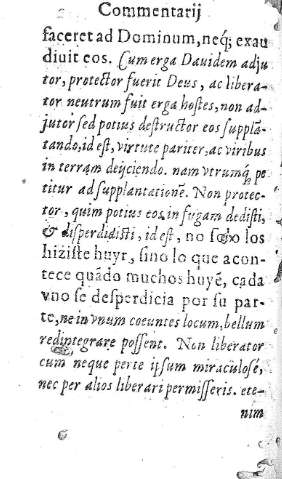 Commentarij
faceret ad Dominum, neq; exau
diuit eos. Cum erga Dauidem adju
tor, protector fuerit Deus, ac libera-
tor neutrum fuit erga hostes, non ad-
jutor sed potius destructor eos supplã-
tando, id est, virtute pariter, ac viribus
in terram deijciendo. nam vtrumq; pe
titur ad supplantationẽ. Non protec-
tor, quim potius eos in fugam dedisti,
& disperdidisti, id est, no solo los
hiziste huyr, sino lo que acon-
tece quãdo muchos huyẽ, cada
vno se desperdicia por su par-
te, ne in vnum coeuntes locum, bellum
redintegrare possent. Non liberator
cum neque perte ipsum miraculosè,
nec per alios liberari permisseris. ete-
nim